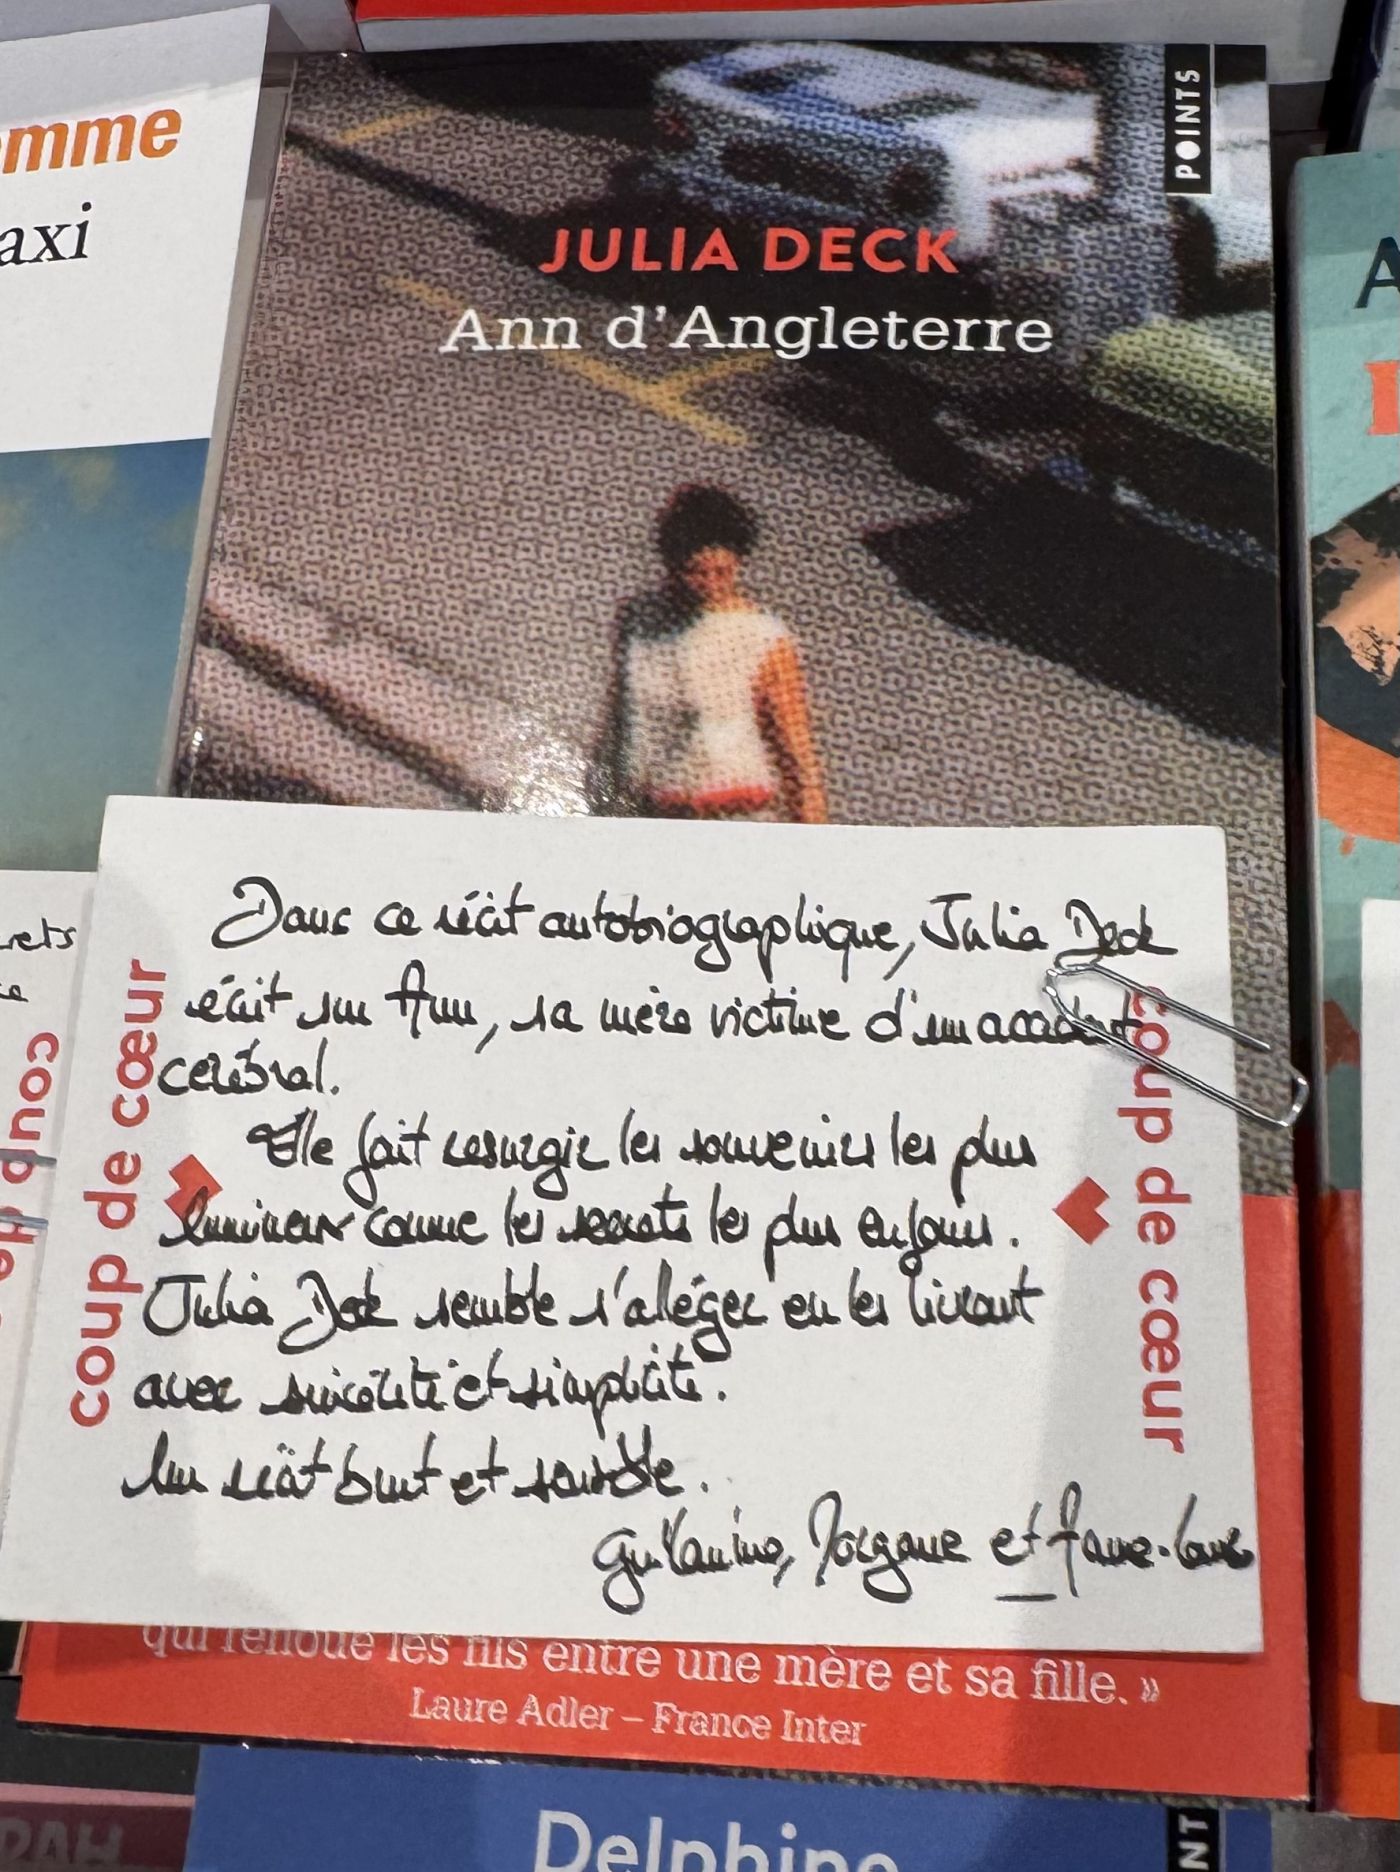 emme
axi
POINTS
JULIA DECK
Ann d'Angleterre
A
rets
coup de
coup de cœur
Dans ce récit autobiographique, Julia Deck
écrit sur Ann, sa mère victime d'un accident
cérébral.
Elle fait resurgir les souvenirs les plus
lumineux comme les secrets les plus enfouis.
Julia Deck semble s'alléger en les livrant
avec sincérité et simplicité.
Un récit brut et sensible.
Guillemine, Morgane et Anne-Laure
coup de cœur
qui renoue les fils entre une mère et sa fille. »
Laure Adler – France Inter
Delphine
NT